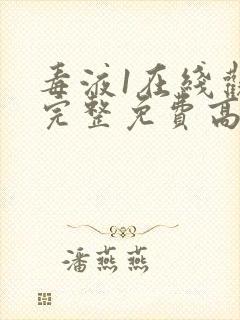 毒液1在线觀
完整免費高
潘燕燕